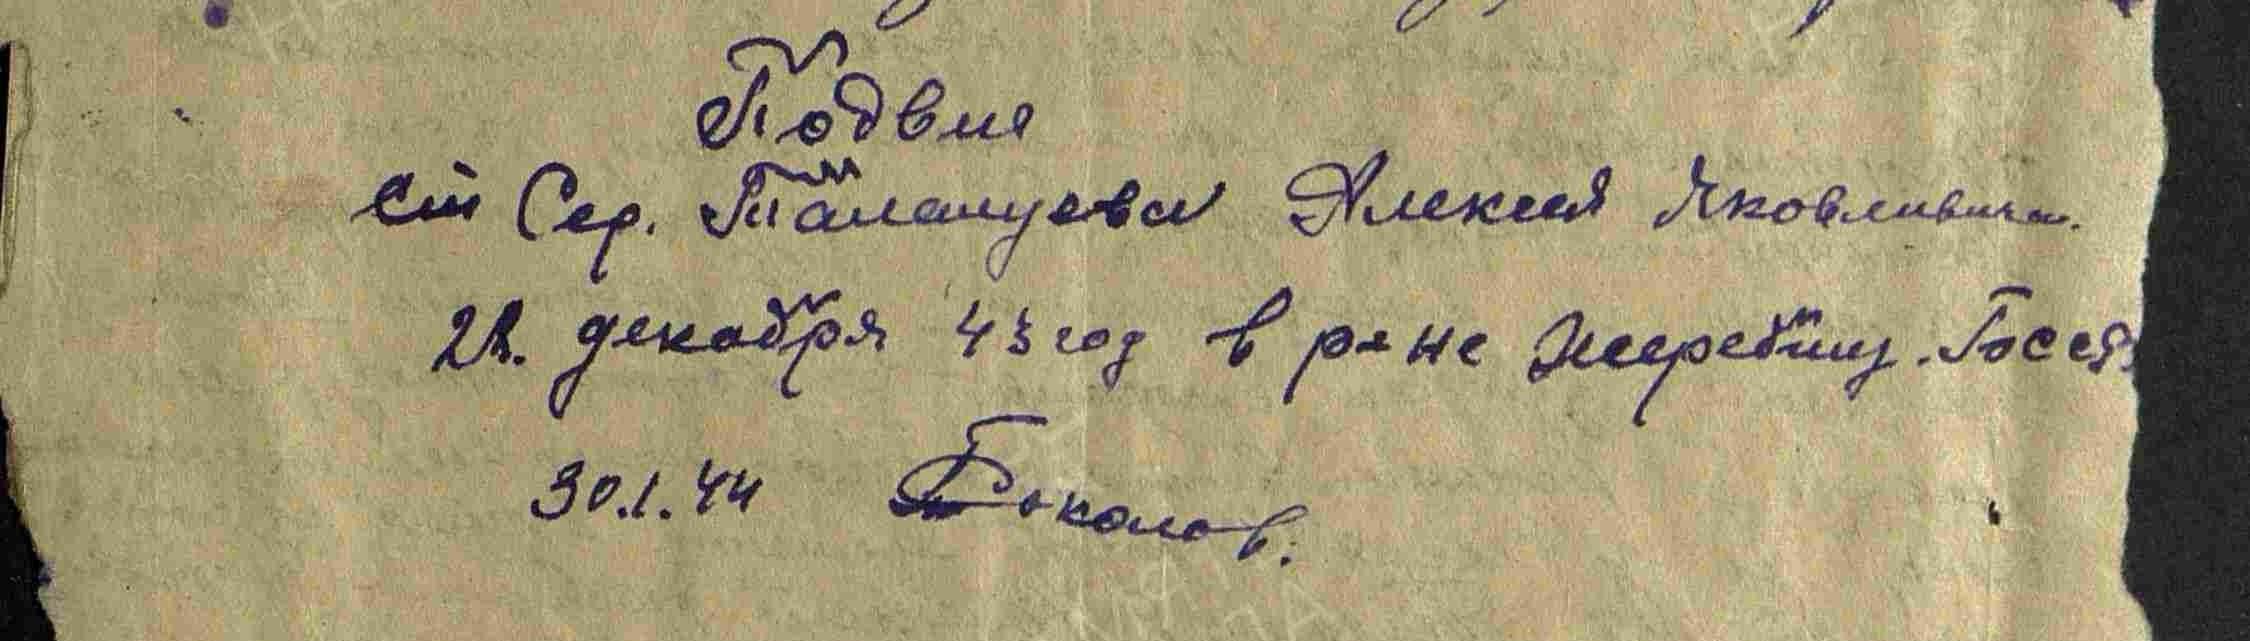 Подвиг
ст Сер. Таланцева Алексея Яковлевича.
28. декабря 43 год в р-не
30.1.44 Боколов.